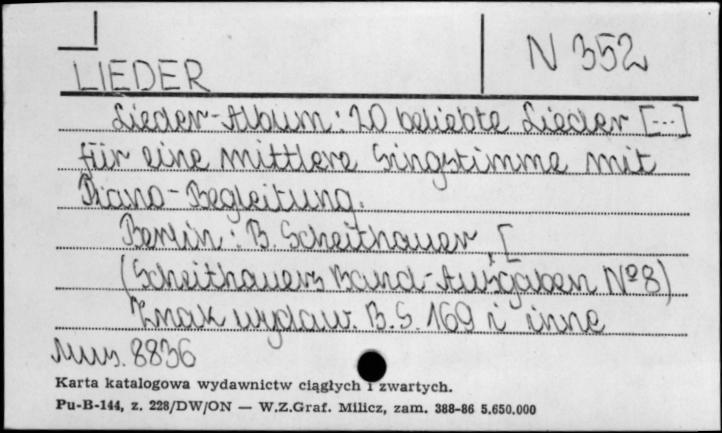 N 352
LIEDER
Lieder-Album: 20 beliebte Lieder [...]
für eine mittlere Singstimme mit
Piano-Begleitung.
Berlin: B. Scheithauer, [
(Scheithauers Band-Ausgaben Nº 8)
Znak wydaw. B.S. 169 i inne
Mus. 8836
Karta katalogowa wydawnictw ciągłych i zwartych.
Pu-B-144, z. 228/DW/ON — W.Z.Graf. Milicz, zam. 388-86 5.650.000